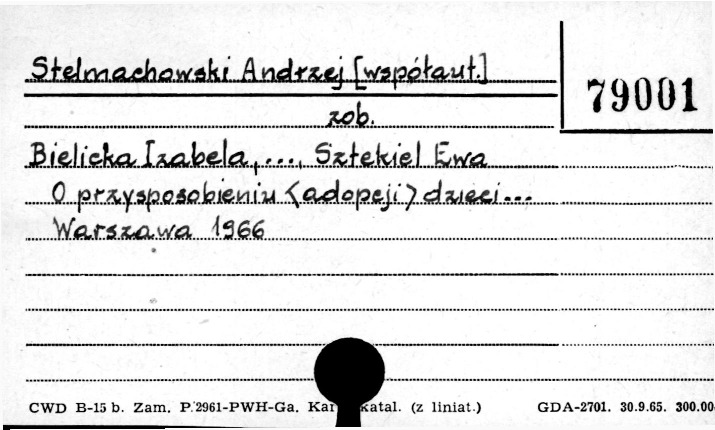 Stelmachowski Andrzej [współaut.]
79001
zob.
Bielicka Izabela, ..., Sztekiel Ewa
O przysposobieniu <adopcji> dzieci...
Warszawa 1966
CWD B-15 b. Zam. P.2961-PWH-Ga. Kar katal. (z liniat.) GDA-2701. 30.9.65. 300.00